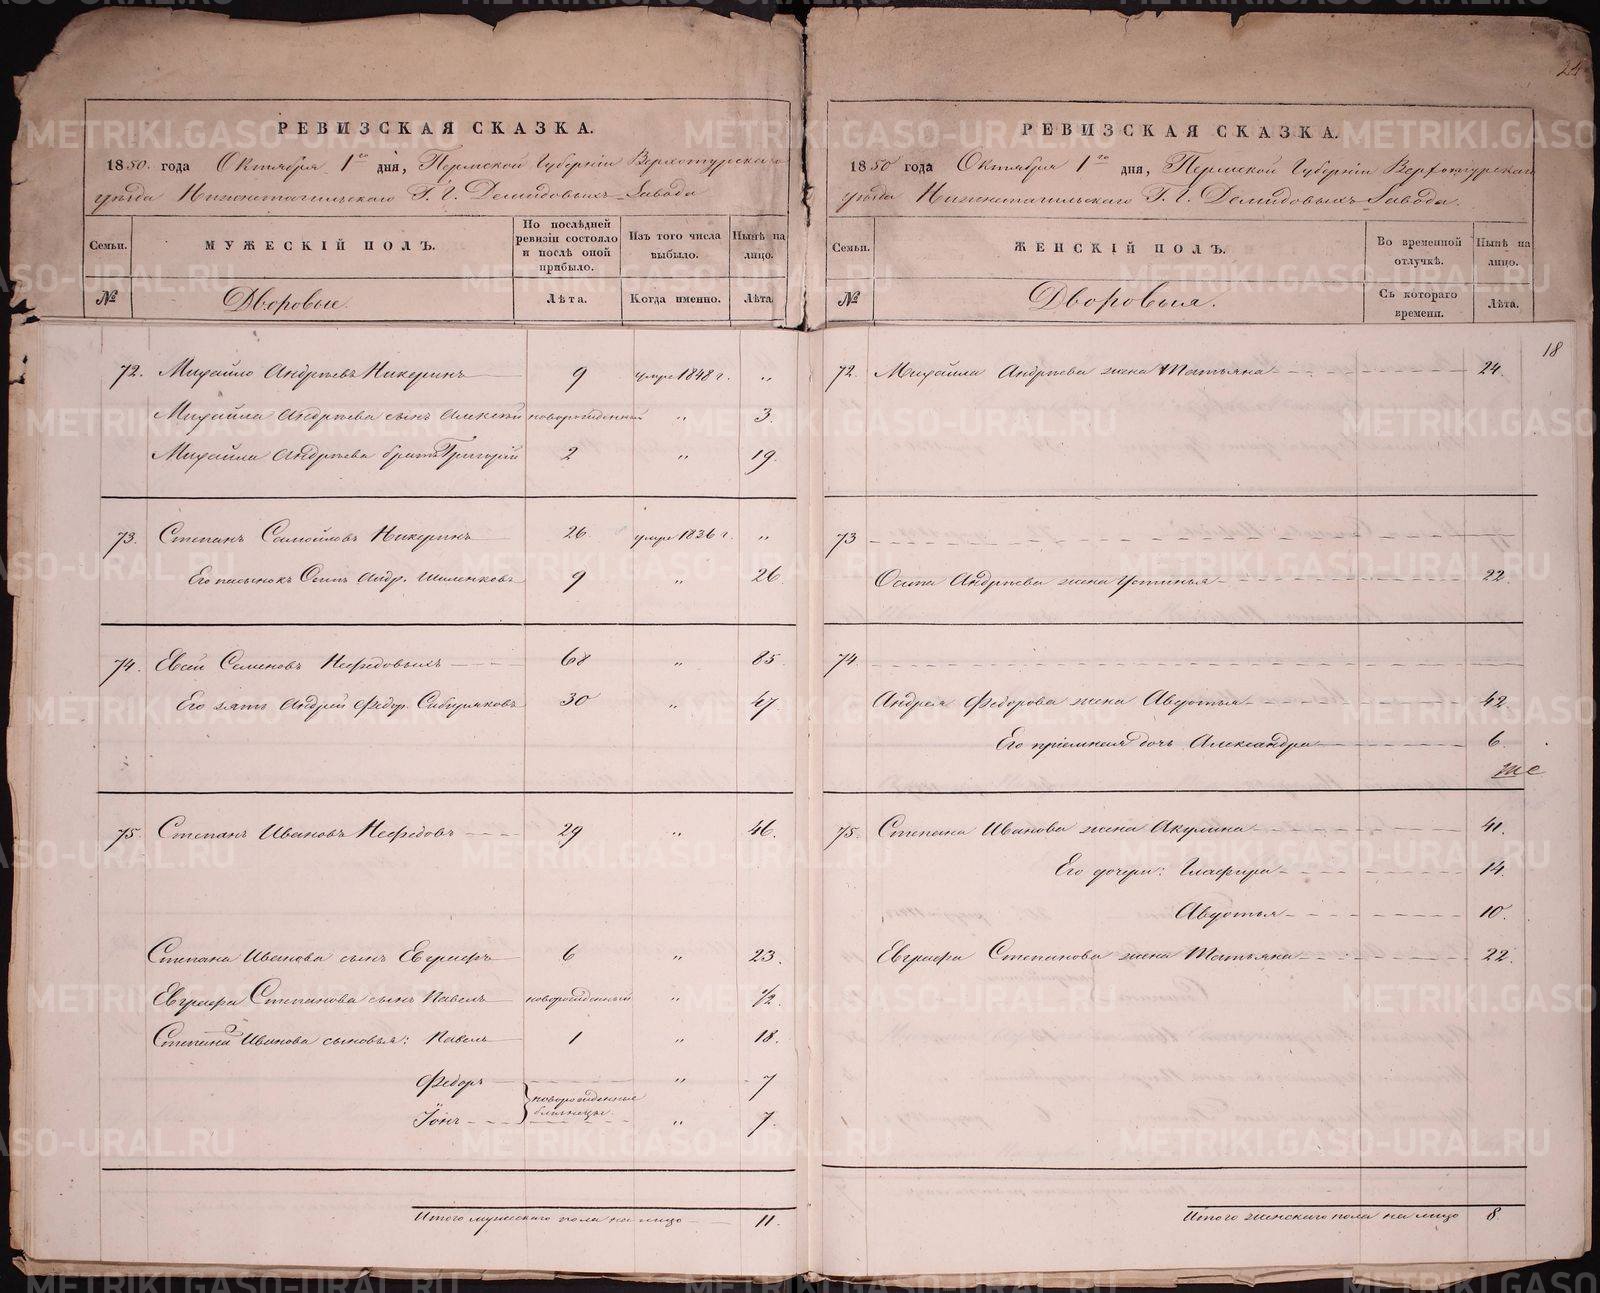 24
РЕВИЗСКАЯ СКАЗКА.
1850. года Октября 1го дня, Пермской Губерніи Верхотурскаго
уѣзда Нижнетагильскаго Г. Г. Демидовыхъ Завода
Семьи.
МУЖЕСКІЙ ПОЛЪ.
По послѣдней ревизіи состояло и послѣ оной прибыло.
Изъ того числа выбыло.
Нынѣ на лицо.
№
Дворовые.
Лѣта.
Когда именно.
Лѣта
72. Михайло Андрѣевъ Никеринъ 9 умре 1848 г. „
Михайла Андрѣева сынъ Алексѣй новорожденный „ 3.
Михайла Андрѣева братъ Григорій 2 „ 19.
73. Степанъ Самойловъ Никеринъ 26. умре 1836 г. „
Его пасынокъ Осипъ Андр. Шиленковъ 9 „ 26.
74. Евсѣй Семеновъ Нефедовыхъ 68 „ 85.
Его зять Андрей Федор. Сибиряковъ 30 „ 47
75. Степанъ Ивановъ Нефедовъ 29 „ 46.
Степана Иванова сынъ Евграфъ 6 „ 23.
Евграфа Степанова сынъ Павелъ новорожденный „ 1/2
Степана Иванова сыновья: Павелъ 1 „ 18.
Федоръ „ 7
новорожденные близнецы
Іонъ „ 7.
Итого мужескаго пола на лицо 11.
РЕВИЗСКАЯ СКАЗКА.
1850 года Октября 1го дня, Пермской Губерніи Верхотурскаго
уѣзда Нижнетагильскаго Г. Г. Демидовыхъ Завода.
Семьи.
ЖЕНСКІЙ ПОЛЪ.
Во временной отлучкѣ.
Нынѣ на лицо.
№
Дворовыя.
Съ котораго времени.
Лѣта.
18
72. Михайла Андрѣева жена Татьяна 24.
73
Осипа Андрѣева жена Устинья 22.
74.
Андрея Федорова жена Авдотья 42
Его пріемная дочь Александра 6.
75. Степана Иванова жена Акулина 41.
Его дочери: Глафира 14.
Авдотья 10.
Евграфа Степанова жена Татьяна 22.
Итого женскаго пола на лицо 8.
METRIKI.GASO-URAL.RU